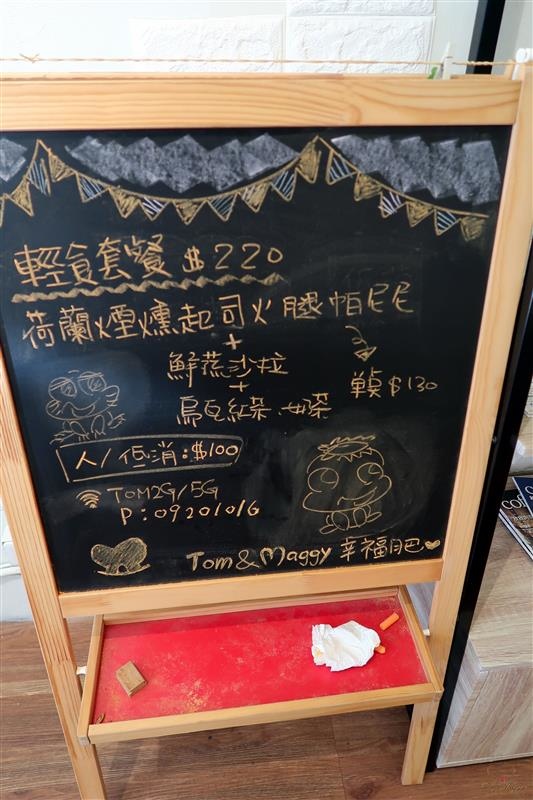 輕食套餐 $220
荷蘭煙燻起司火腿帕尼尼
+
鮮蔬沙拉
單點 $130
+
烏瓦紅茶.奶茶
人/低消:$100
TOM2G/5G
P:09201016
Tom&Maggy 幸福月巴